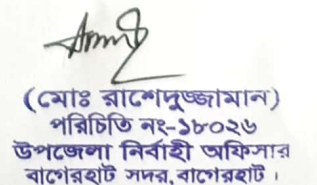 (মোঃ রাশেদুজ্জামান)
পরিচিতি নং-১৮০২৬
উপজেলা নির্বাহী অফিসার
বাগেরহাট সদর, বাগেরহাট।